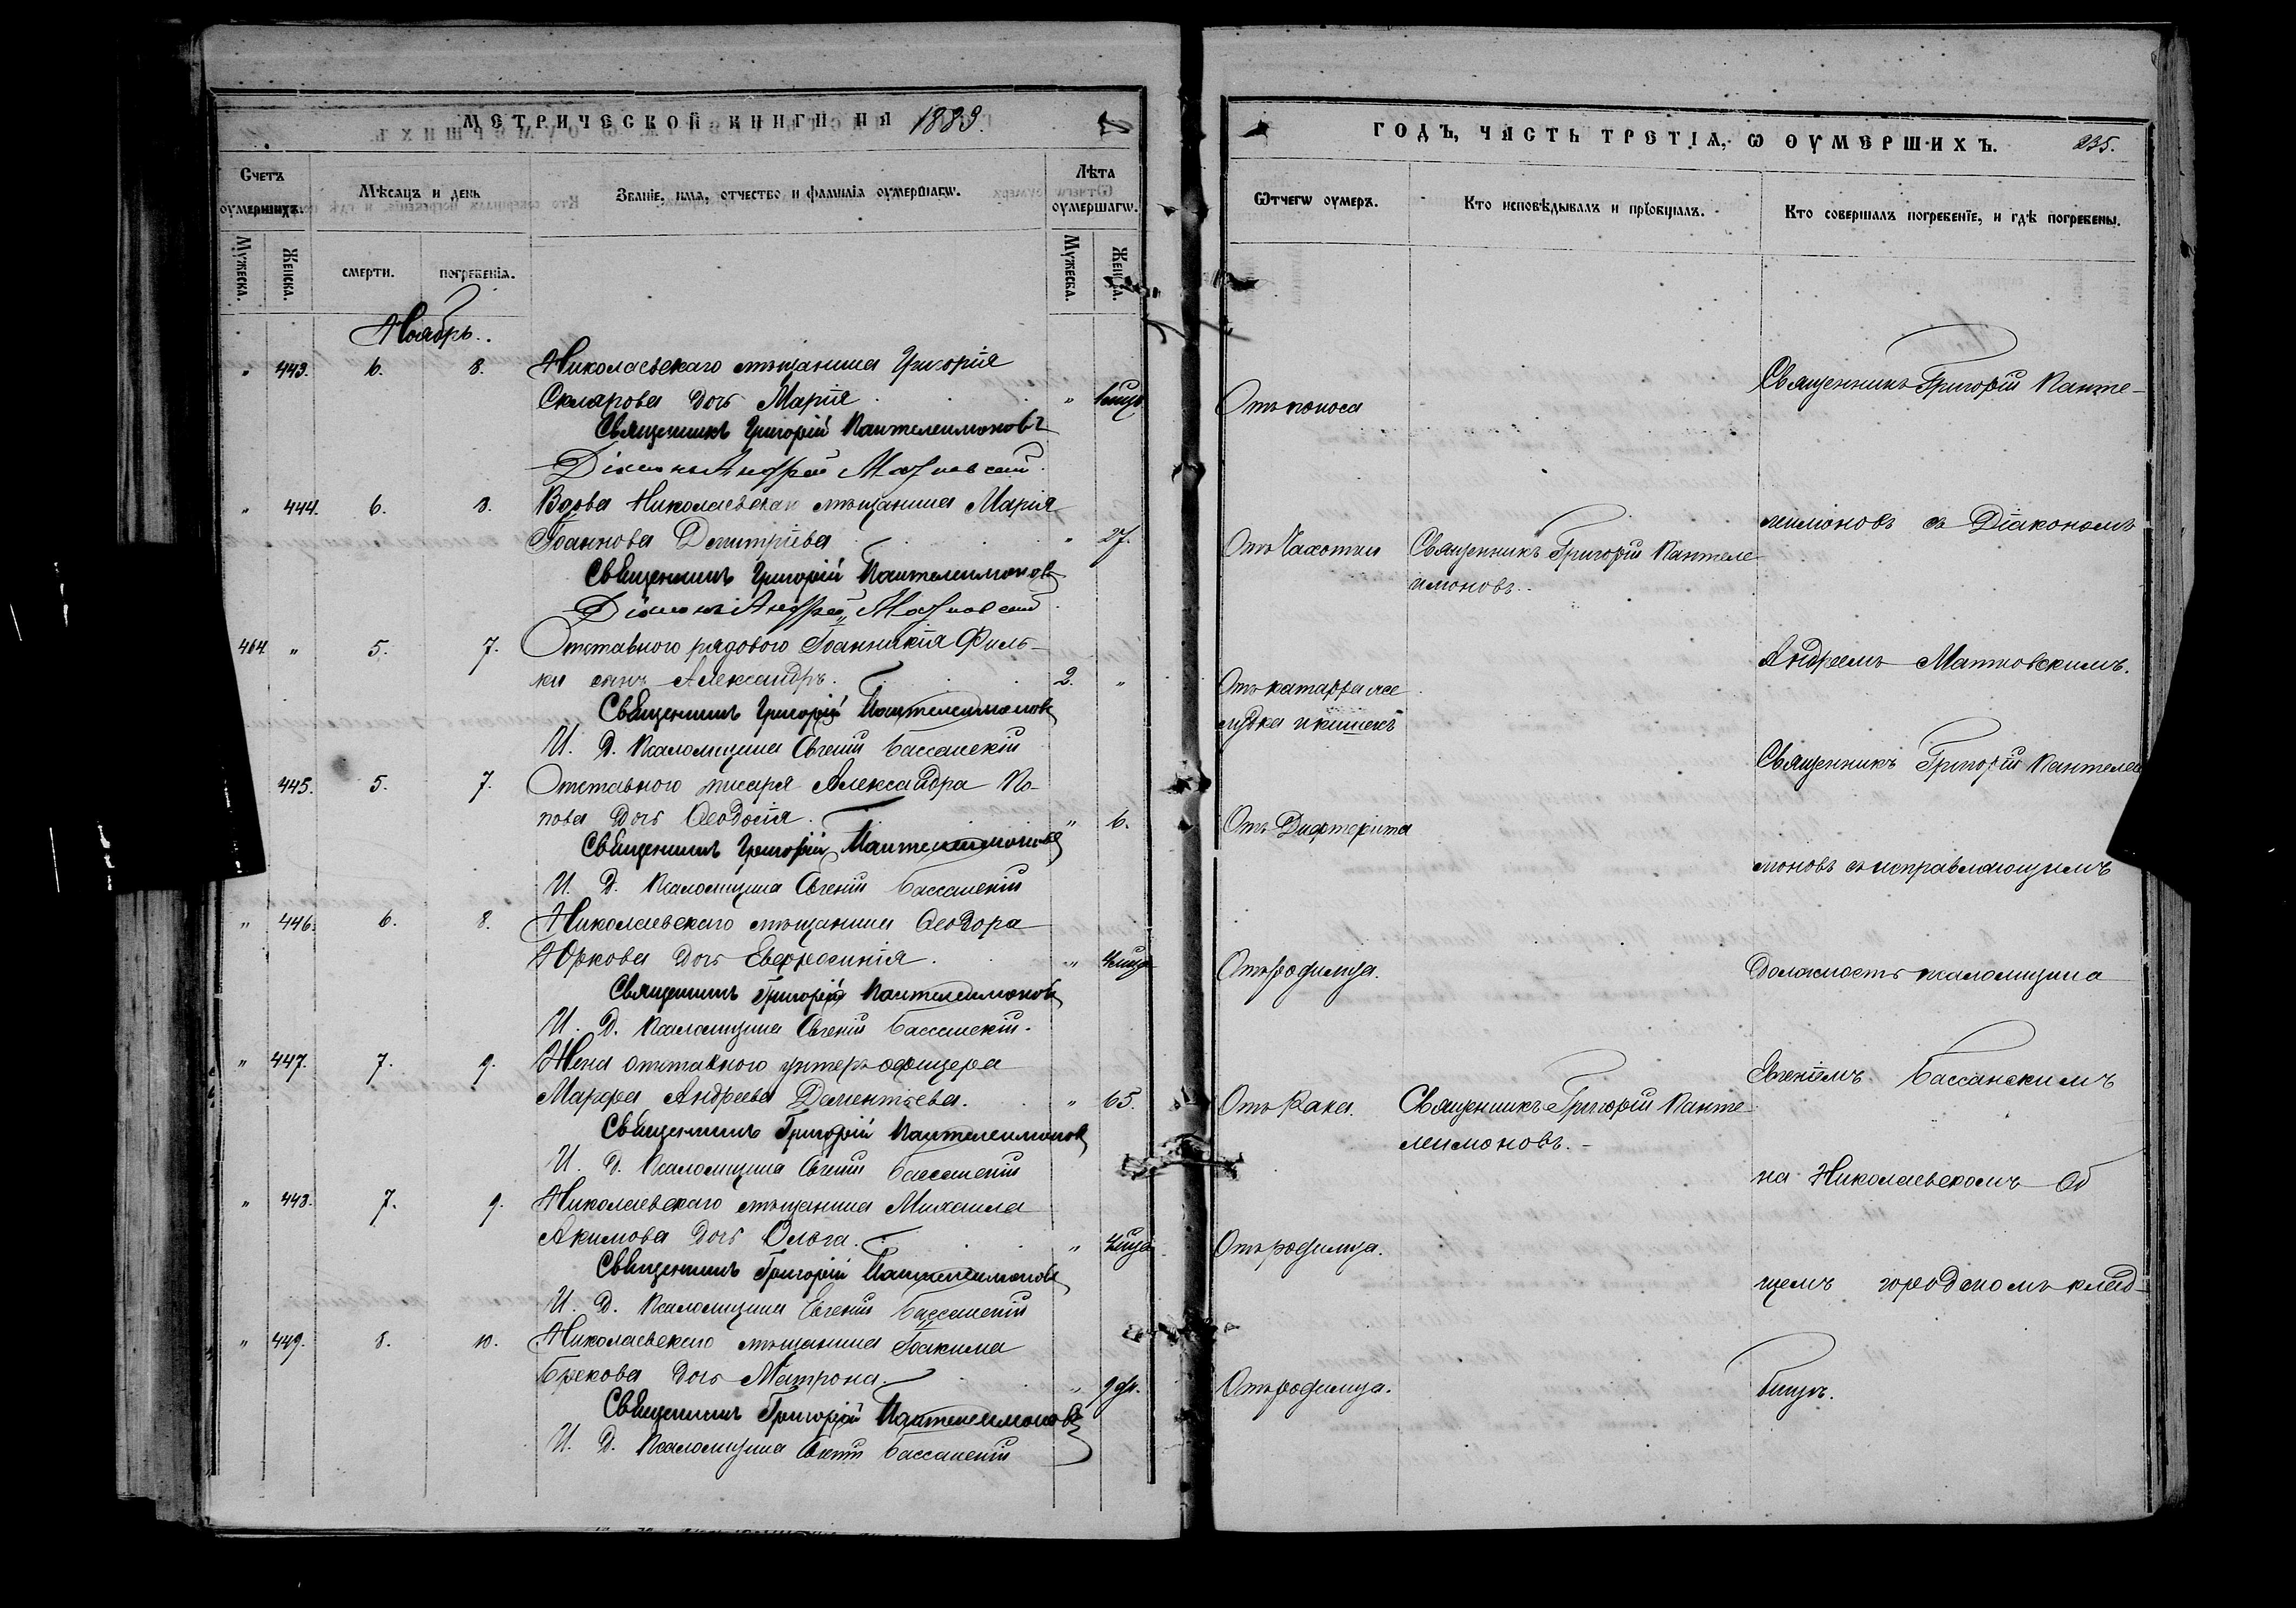 МЕТРИЧЕСКОЙ КНИГИ НА 1889.
Счетъ оумершихъ.
Мѣсяцъ и день
Званіе, имя, отчество и фамилія оумершагѡ.
Лѣта оумершагѡ.
Мужеска.
Женска.
смерти.
погребенія.
Мужеска.
Женска.
Ноябрь.
" 443. 6. 8. Николаевскаго мѣщанина Григорія
Склярова дочь Марія " 1 мѣц.
Священникъ Григорій Пантелеимоновъ
Діаконъ Андрей Матковскій.
" 444. 6. 8. Вдова Николаевская мѣщанина Марія
Іоаннова Димитріева " 27.
Священникъ Григорій Пантелеимоновъ
Діаконъ Андрей Матковскій
464 " 5. 7. Отставного рядового Іоанникія Филь-
ки сынъ Александръ. 2. "
Священникъ Григорій Пантелеимоновъ
И. Д. Псаломщика Евгеній Бассанскій
445. 5. 7. Отставного писаря Александра По-
пова дочь Ѳеодосія. " 6.
Священникъ Григорій Пантелеимоновъ
И. Д. Псаломщика Евгеній Бассанскій
" 446. 6. 8. Николаевскаго мѣщанина Ѳеодора
Юркова дочь Евфросинія. "
Священникъ Григорій Пантелеимоновъ
И. Д. Псаломщика Евгеній Бассанскій.
" 447. 7. 9. Жена отставного унтеръ-офицера
Марфа Андреева Дементьева. " 65.
Священникъ Григорій Пантелеимоновъ
И. Д. Псаломщика Евгеній Бассанскій
" 448. 7. 9. Николаевскаго мѣщанина Михаила
Акимова дочь Ольга. "
Священникъ Григорій Пантелеимоновъ
И. Д. Псаломщика Евгеній Бассанскій
" 449. 8. 10. Николаевскаго мѣщанина Іоакима
Брекова дочь Матрона. " 9 дн.
Священникъ Григорій Пантелеимоновъ
И. Д. Псаломщика Евгеній Бассанскій
ГОДЪ, ЧАСТЬ ТРЕТІЯ, Ѡ ОУМЕРШИХЪ. 235.
Ѿтчегѡ оумеръ.
Кто исповѣдывалъ и пріобщалъ.
Кто совершалъ погребеніе, и гдѣ погребены.
Отъ поноса
Отъ Чахотки
Священникъ Григорій Пантеле
имоновъ.
Отъ катарра же
лудка и кишекъ
Отъ Дифтерита
Отъ родимца.
Отъ Рака.
Священникъ Григорій Панте
леимоновъ.
Отъ родимца.
Отъ родимца.
Священникъ Григорій Панте-
леимоновъ съ Діакономъ
Андреемъ Матковскимъ.
Священникъ Григорій Пантелеи
моновъ съ исправляющимъ
Должность псаломщика
Евгеніемъ Бассанскимъ
на Николаевскомъ Об
щемъ городскомъ клад-
бищѣ.